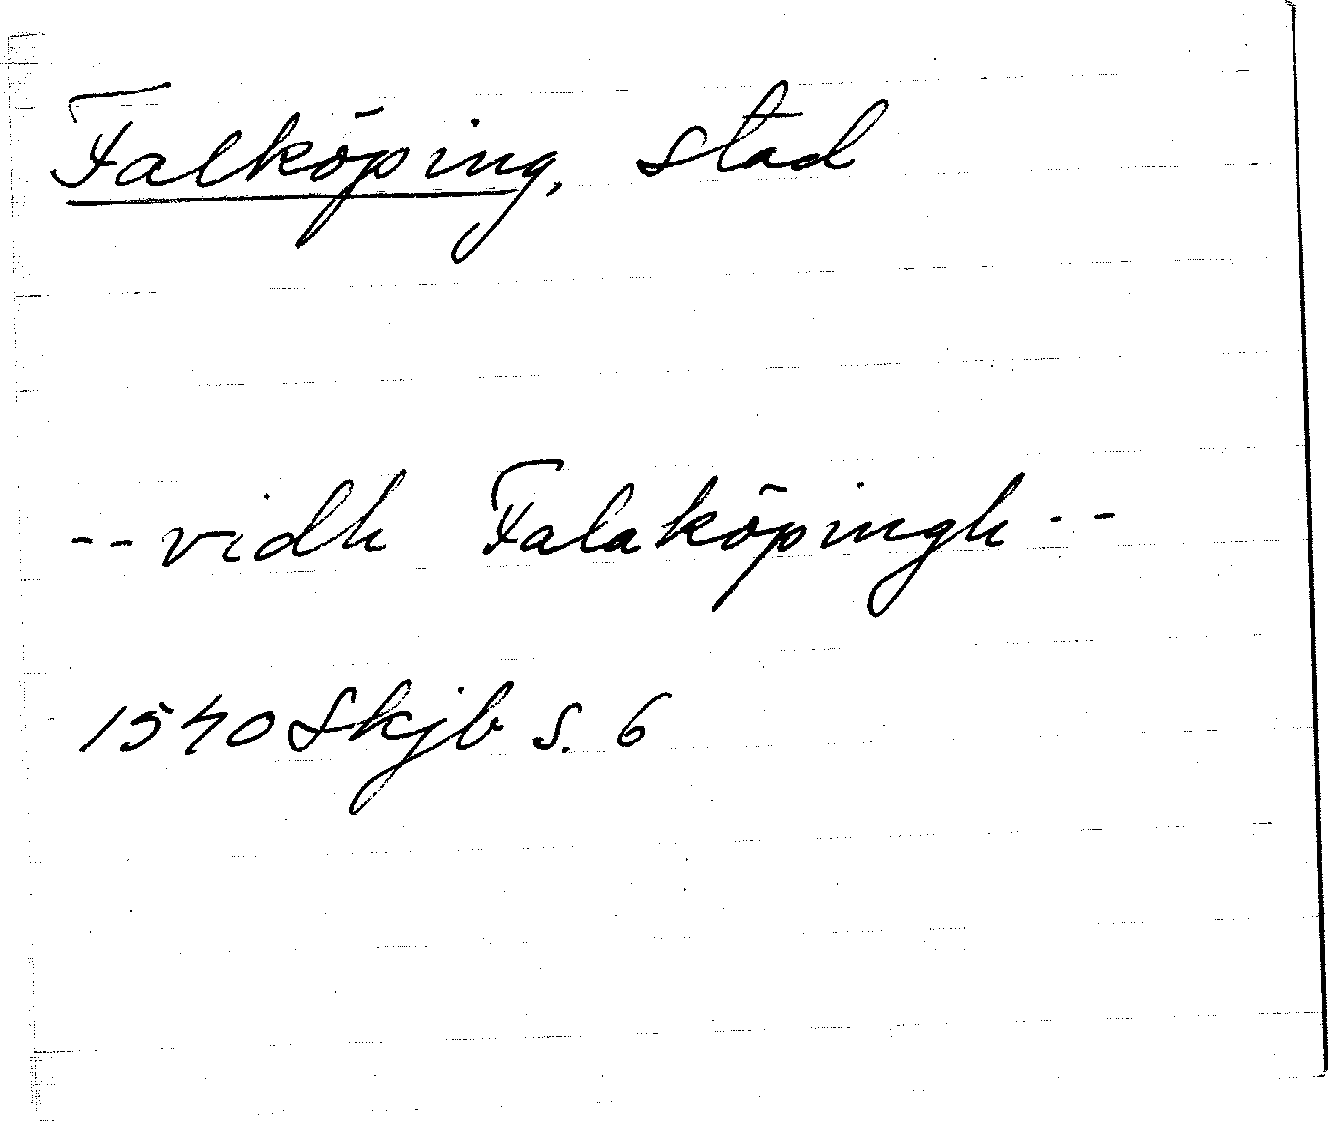 Falköping, stad
--vidh Falaköpingh--
1540 Skjb s. 6